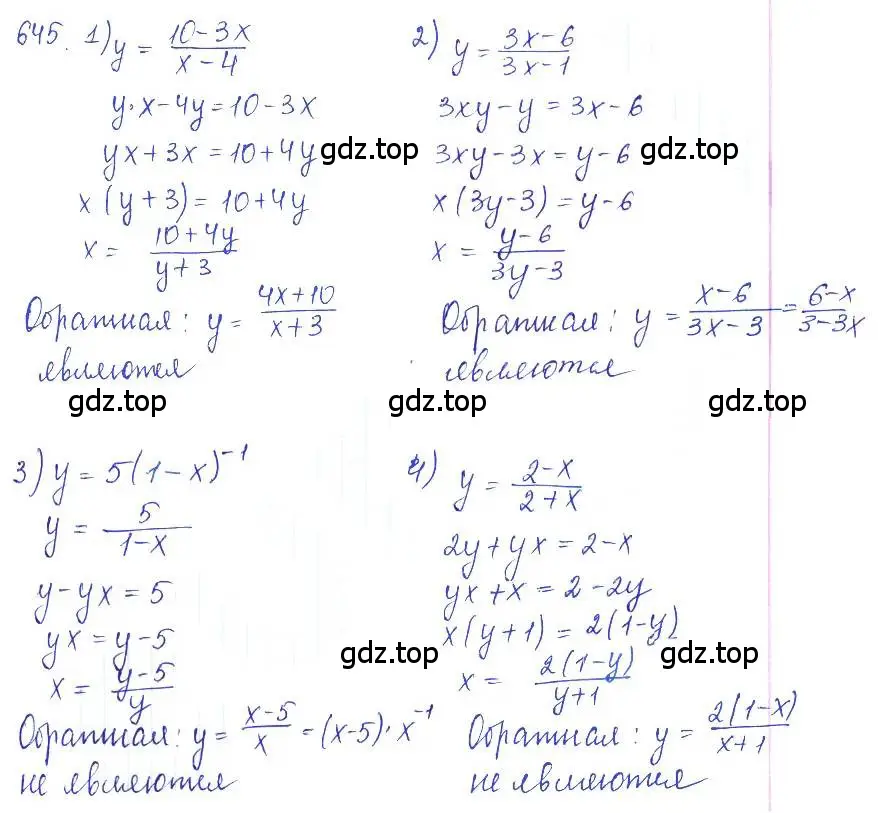 645. 1) y = (10-3x)/(x-4)
y·x-4y=10-3x
yx+3x=10+4y
x(y+3)=10+4y
x = (10+4y)/(y+3)
Обратная: y = (4x+10)/(x+3)
являются
2) y = (3x-6)/(3x-1)
3xy-y=3x-6
3xy-3x=y-6
x(3y-3)=y-6
x = (y-6)/(3y-3)
Обратная: y = (x-6)/(3x-3) = (6-x)/(3-3x)
являются
gdz.top
gdz.top
gdz.top
gdz.top
gdz.top
3) y = 5(1-x)⁻¹
y = 5/(1-x)
y-yx=5
yx=y-5
x = (y-5)/y
Обратная: y = (x-5)/x = (x-5)·x⁻¹
не являются
4) y = (2-x)/(2+x)
2y+yx=2-x
yx+x=2-2y
x(y+1)=2(1-y)
x = 2(1-y)/(y+1)
Обратная: y = 2(1-x)/(x+1)
не являются
gdz.top
gdz.top